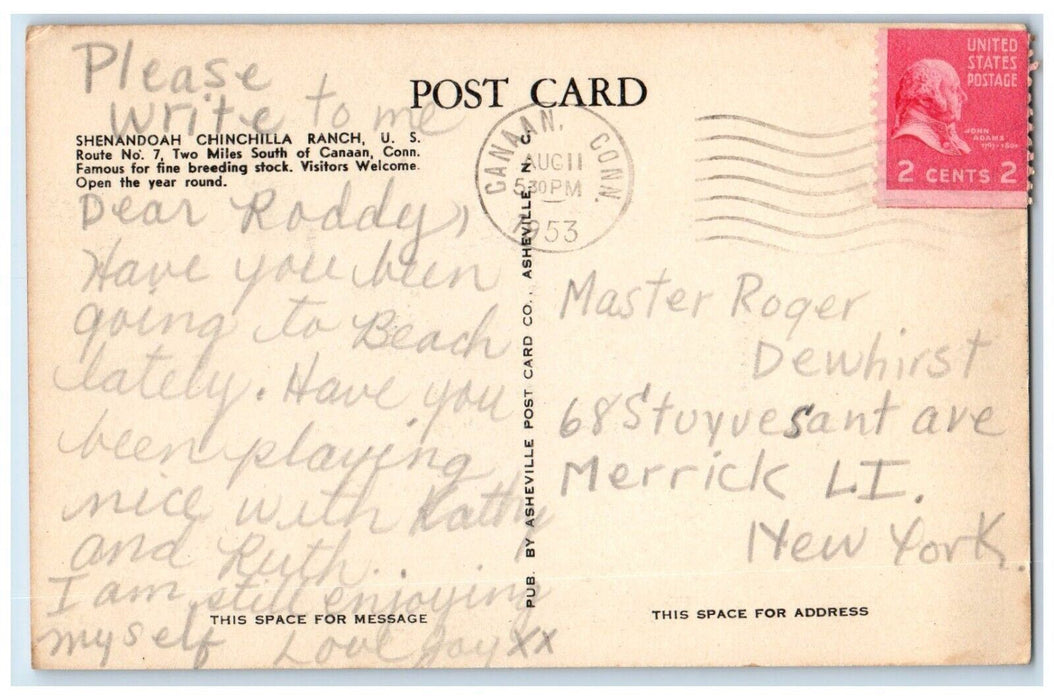 Please
write to me
POST CARD
SHENANDOAH CHINCHILLA RANCH, U. S.
Route No. 7, Two Miles South of Canaan, Conn.
Famous for fine breeding stock. Visitors Welcome.
Open the year round.
Dear Roddy,
Have you been
going to Beach
lately. Have you
been playing
nice with Kathy
and Ruth.
I am still enjoying
myself Love Joy xx
THIS SPACE FOR MESSAGE
PUB. BY ASHEVILLE POST CARD CO., ASHEVILLE, N. C.
CANAAN, CONN.
AUG 11
5 30 PM
1953
UNITED
STATES
POSTAGE
JOHN
ADAMS
1797-1801
2 CENTS 2
Master Roger
Dewhirst
68 Stuyvesant ave
Merrick L.I.
New York.
THIS SPACE FOR ADDRESS